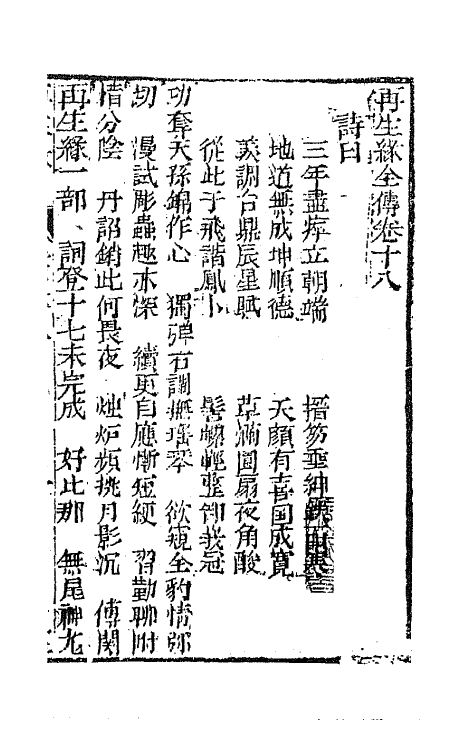 再生緣全傳卷十八
詩曰
三年盡瘁立朝端 搢笏垂紳
地道無成坤順德 天顔有喜国成寬
美調台鼎辰星賦 草滿圓扇夜角酸
從此于飛諧鳳卜 髻螺輕整卸峩冠
功奪天孫錦作心 獨弹右調撫瑶琴 欲窺全豹情弥
切 漫試彫蟲趣亦深 續更自應慚短綆 習勤聊附
惜分陰 丹詔銷此何畏夜 烛炉頻挑月影沉 傅閑
再生緣一部、詞登十七未完成 好比那 無尾神龙